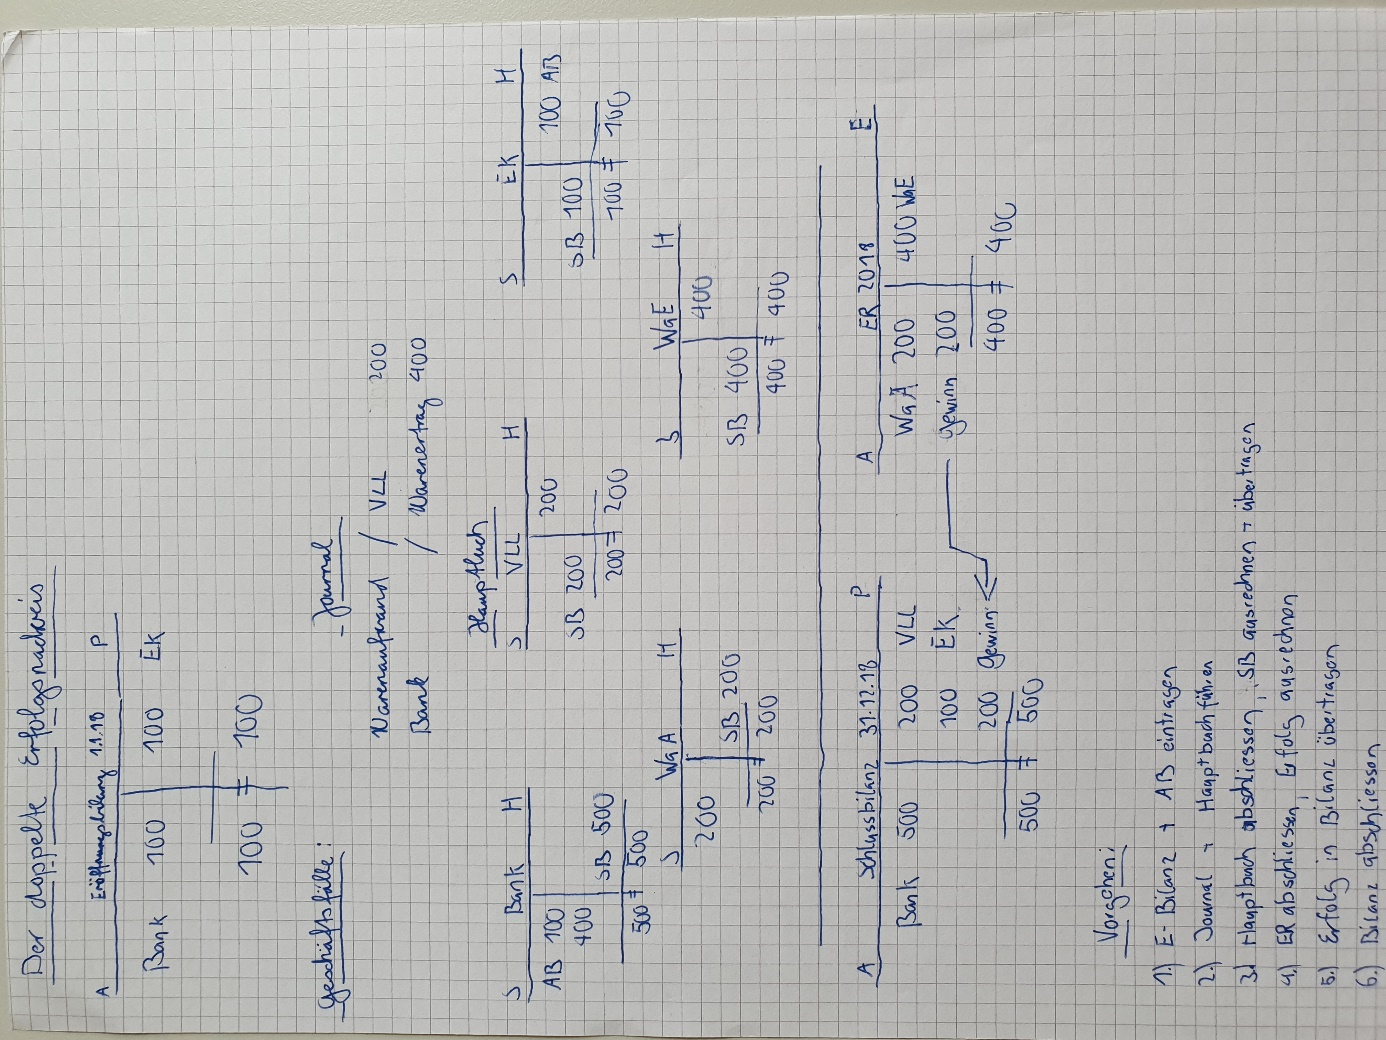 Der doppelte Erfolgsnachweis
A Eröffnungsbilanz 1.1.18 P
Bank 100 100 EK
100 = 100
Geschäftsfälle: - Journal
Warenaufwand / VLL 200
Bank / Warenertrag 400
Hauptbuch
S Bank H
AB 100
400 SB 500
500 = 500
S VLL H
200
SB 200
200 = 200
S EK H
100 AB
SB 100
100 = 100
S WaA H
200
SB 200
200 = 200
S WaE H
400
SB 400
400 = 400
A Schlussbilanz 31.12.18 P
Bank 500 200 VLL
100 EK
200 Gewinn
500 = 500
A ER 2018 E
WaA 200 400 WaE
Gewinn 200
400 = 400
Vorgehen:
1.) E-Bilanz + AB eintragen
2.) Journal + Hauptbuch führen
3.) Hauptbuch abschliessen, SB ausrechnen + übertragen
4.) ER abschliessen, Erfolg ausrechnen
5.) Erfolg in Bilanz übertragen
6.) Bilanz abschliessen